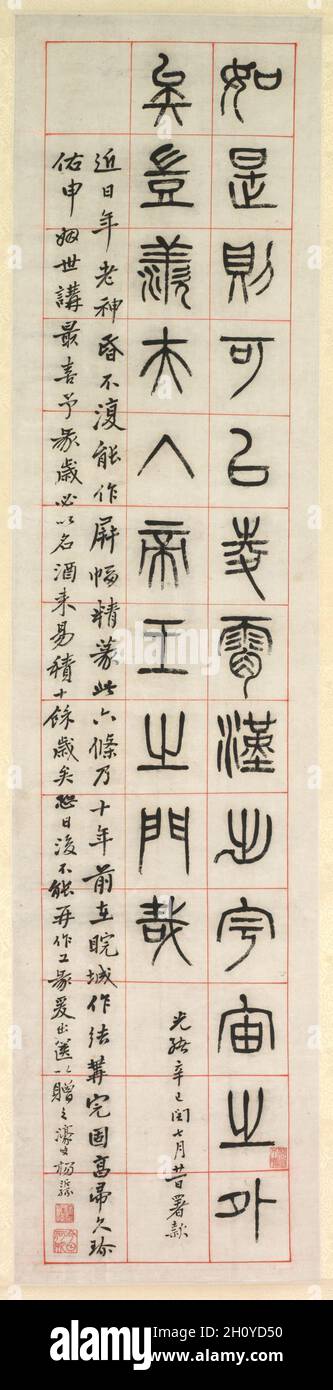 如是則可㠯凌霄漢出宇宙之外
矣豈羨夫入帝王之門哉
光緒辛巳閏七月廿日署款
近日年老神昏不復能作屏幅精篆此六條乃十年前在皖城作結構完固帚久珍
佑申姻世講最喜予篆歲必以名酒來易積十餘歲矣恐日後不能再作工篆爰出篋以贈之濠叟楊沂孫
alamy
alamy
Image ID: 2G0YD50
www.alamy.com